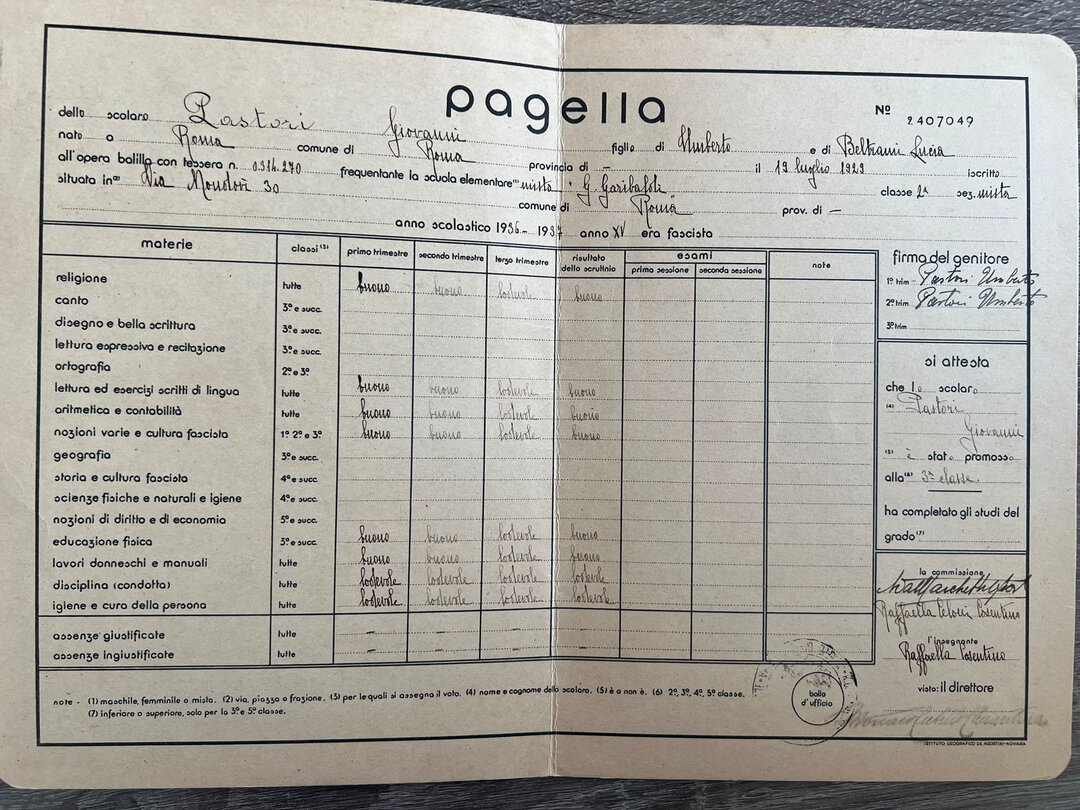 pagella
Nº 2407049
dello scolaro Pastori Giovanni figlio di Umberto e di Beltrami Lucia
nato a Roma comune di Roma provincia di — il 19 luglio 1929 iscritto
all'opera balilla con tessera n. 1314.270 frequentante la scuola elementare (1) mista: G. Garibaldi classe 2ª sez. mista
situata in (2) Via Mondovì 30 comune di Roma prov. di —
anno scolastico 1936-1937 anno XV era fascista
materie classi (3) primo trimestre secondo trimestre terzo trimestre risultato dello scrutinio esami prima sessione seconda sessione note
religione tutte buono buono lodevole buono
canto 3ª e succ.
disegno e bella scrittura 3ª e succ.
lettura espressiva e recitazione 3ª e succ.
ortografia 2ª e 3ª
lettura ed esercizi scritti di lingua tutte buono buono lodevole buono
aritmetica e contabilità tutte buono buono lodevole buono
nozioni varie e cultura fascista 1ª 2ª e 3ª buono buono lodevole buono
geografia 3ª e succ.
storia e cultura fascista 4ª e succ.
scienze fisiche e naturali e igiene 4ª e succ.
nozioni di diritto e di economia 5ª e succ.
educazione fisica 3ª e succ. buono buono lodevole buono
lavori donneschi e manuali tutte buono buono lodevole buono
disciplina (condotta) tutte lodevole lodevole lodevole lodevole
igiene e cura della persona tutte lodevole lodevole lodevole lodevole
assenze giustificate tutte — — —
assenze ingiustificate tutte — — —
firma del genitore
1º trim Pastori Umberto
2º trim Pastori Umberto
3º trim
si attesta
che lo scolaro
(4) Pastori
Giovanni
(5) è stato promosso
alla (6) 3ª classe.
ha completato gli studi del
grado (7)
la commissione
Raffaella Cosentino
l'insegnante
Raffaella Cosentino
visto: il direttore
bollo
d'ufficio
note - (1) maschile, femminile o mista. (2) via, piazza o frazione. (3) per le quali si assegna il voto. (4) nome e cognome dello scolaro. (5) è o non è. (6) 2ª, 3ª, 4ª, 5ª classe.
(7) inferiore o superiore, solo per la 3ª e 5ª classe.
ISTITUTO GEOGRAFICO DE AGOSTINI-NOVARA